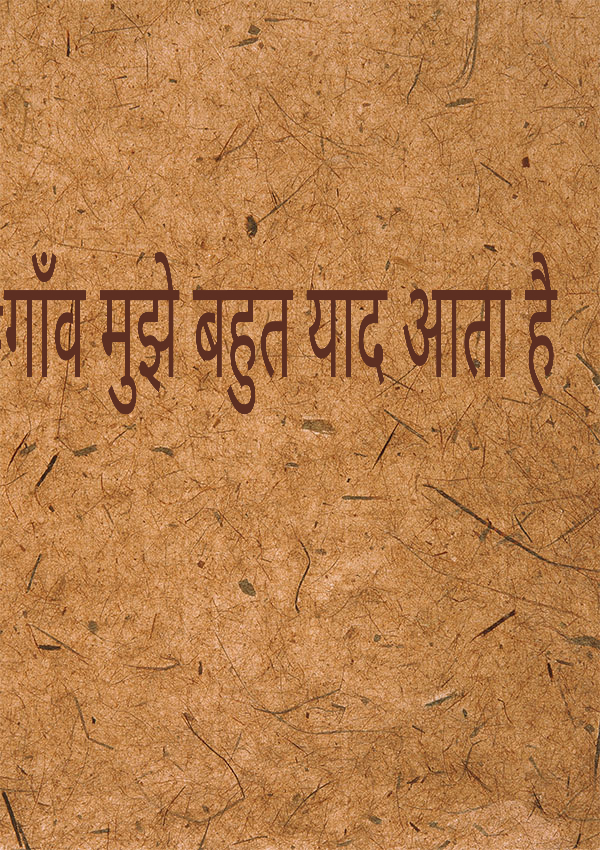 गाँव मुझे बहुत याद आता है